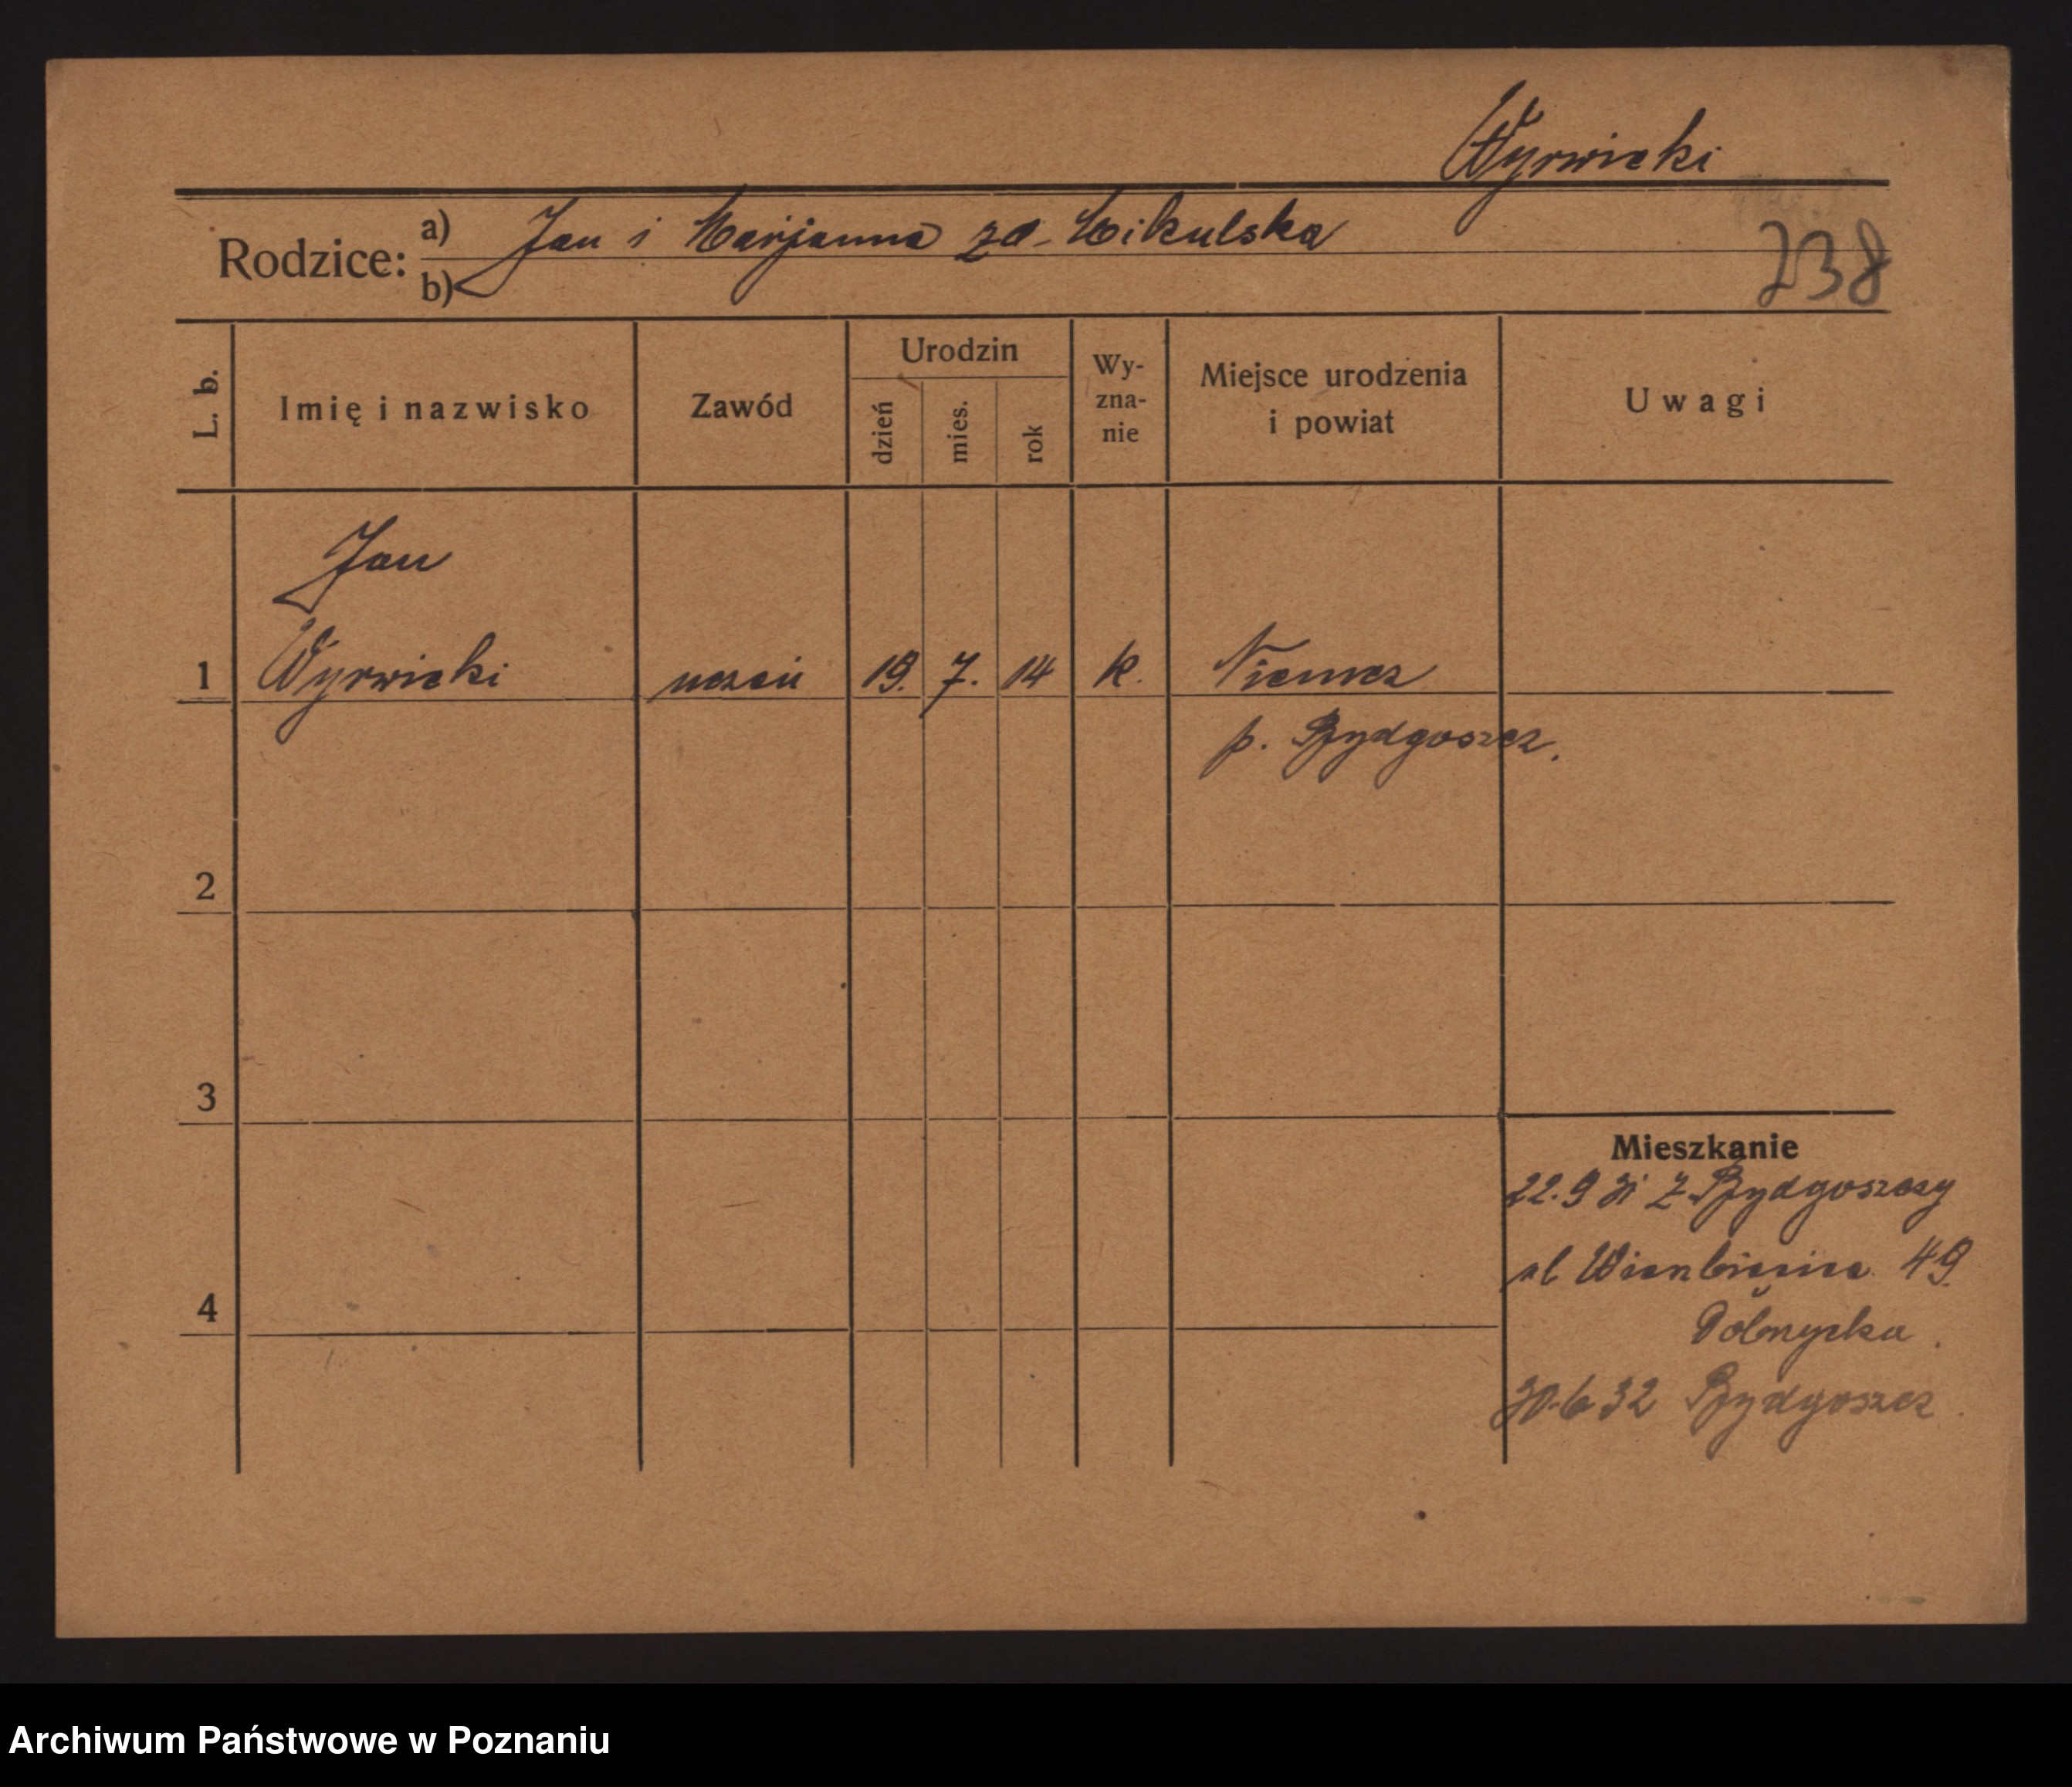 Wyrwicki
Rodzice: a) Jan i Marjanna zd. Mikulska
b)
238
L. b.
Imię i nazwisko
Zawód
Urodzin
dzień
mies.
rok
Wy-
zna-
nie
Miejsce urodzenia
i powiat
Uwagi
Jan
1 Wyrwicki uczeń 19. 7. 14 k. Niemcz
p. Bydgoszcz.
2
3
Mieszkanie
22.9 31 z Bydgoszczy
ul Wierzbięcice 49
4
30.6 32 Bydgoszcz
Archiwum Państwowe w Poznaniu